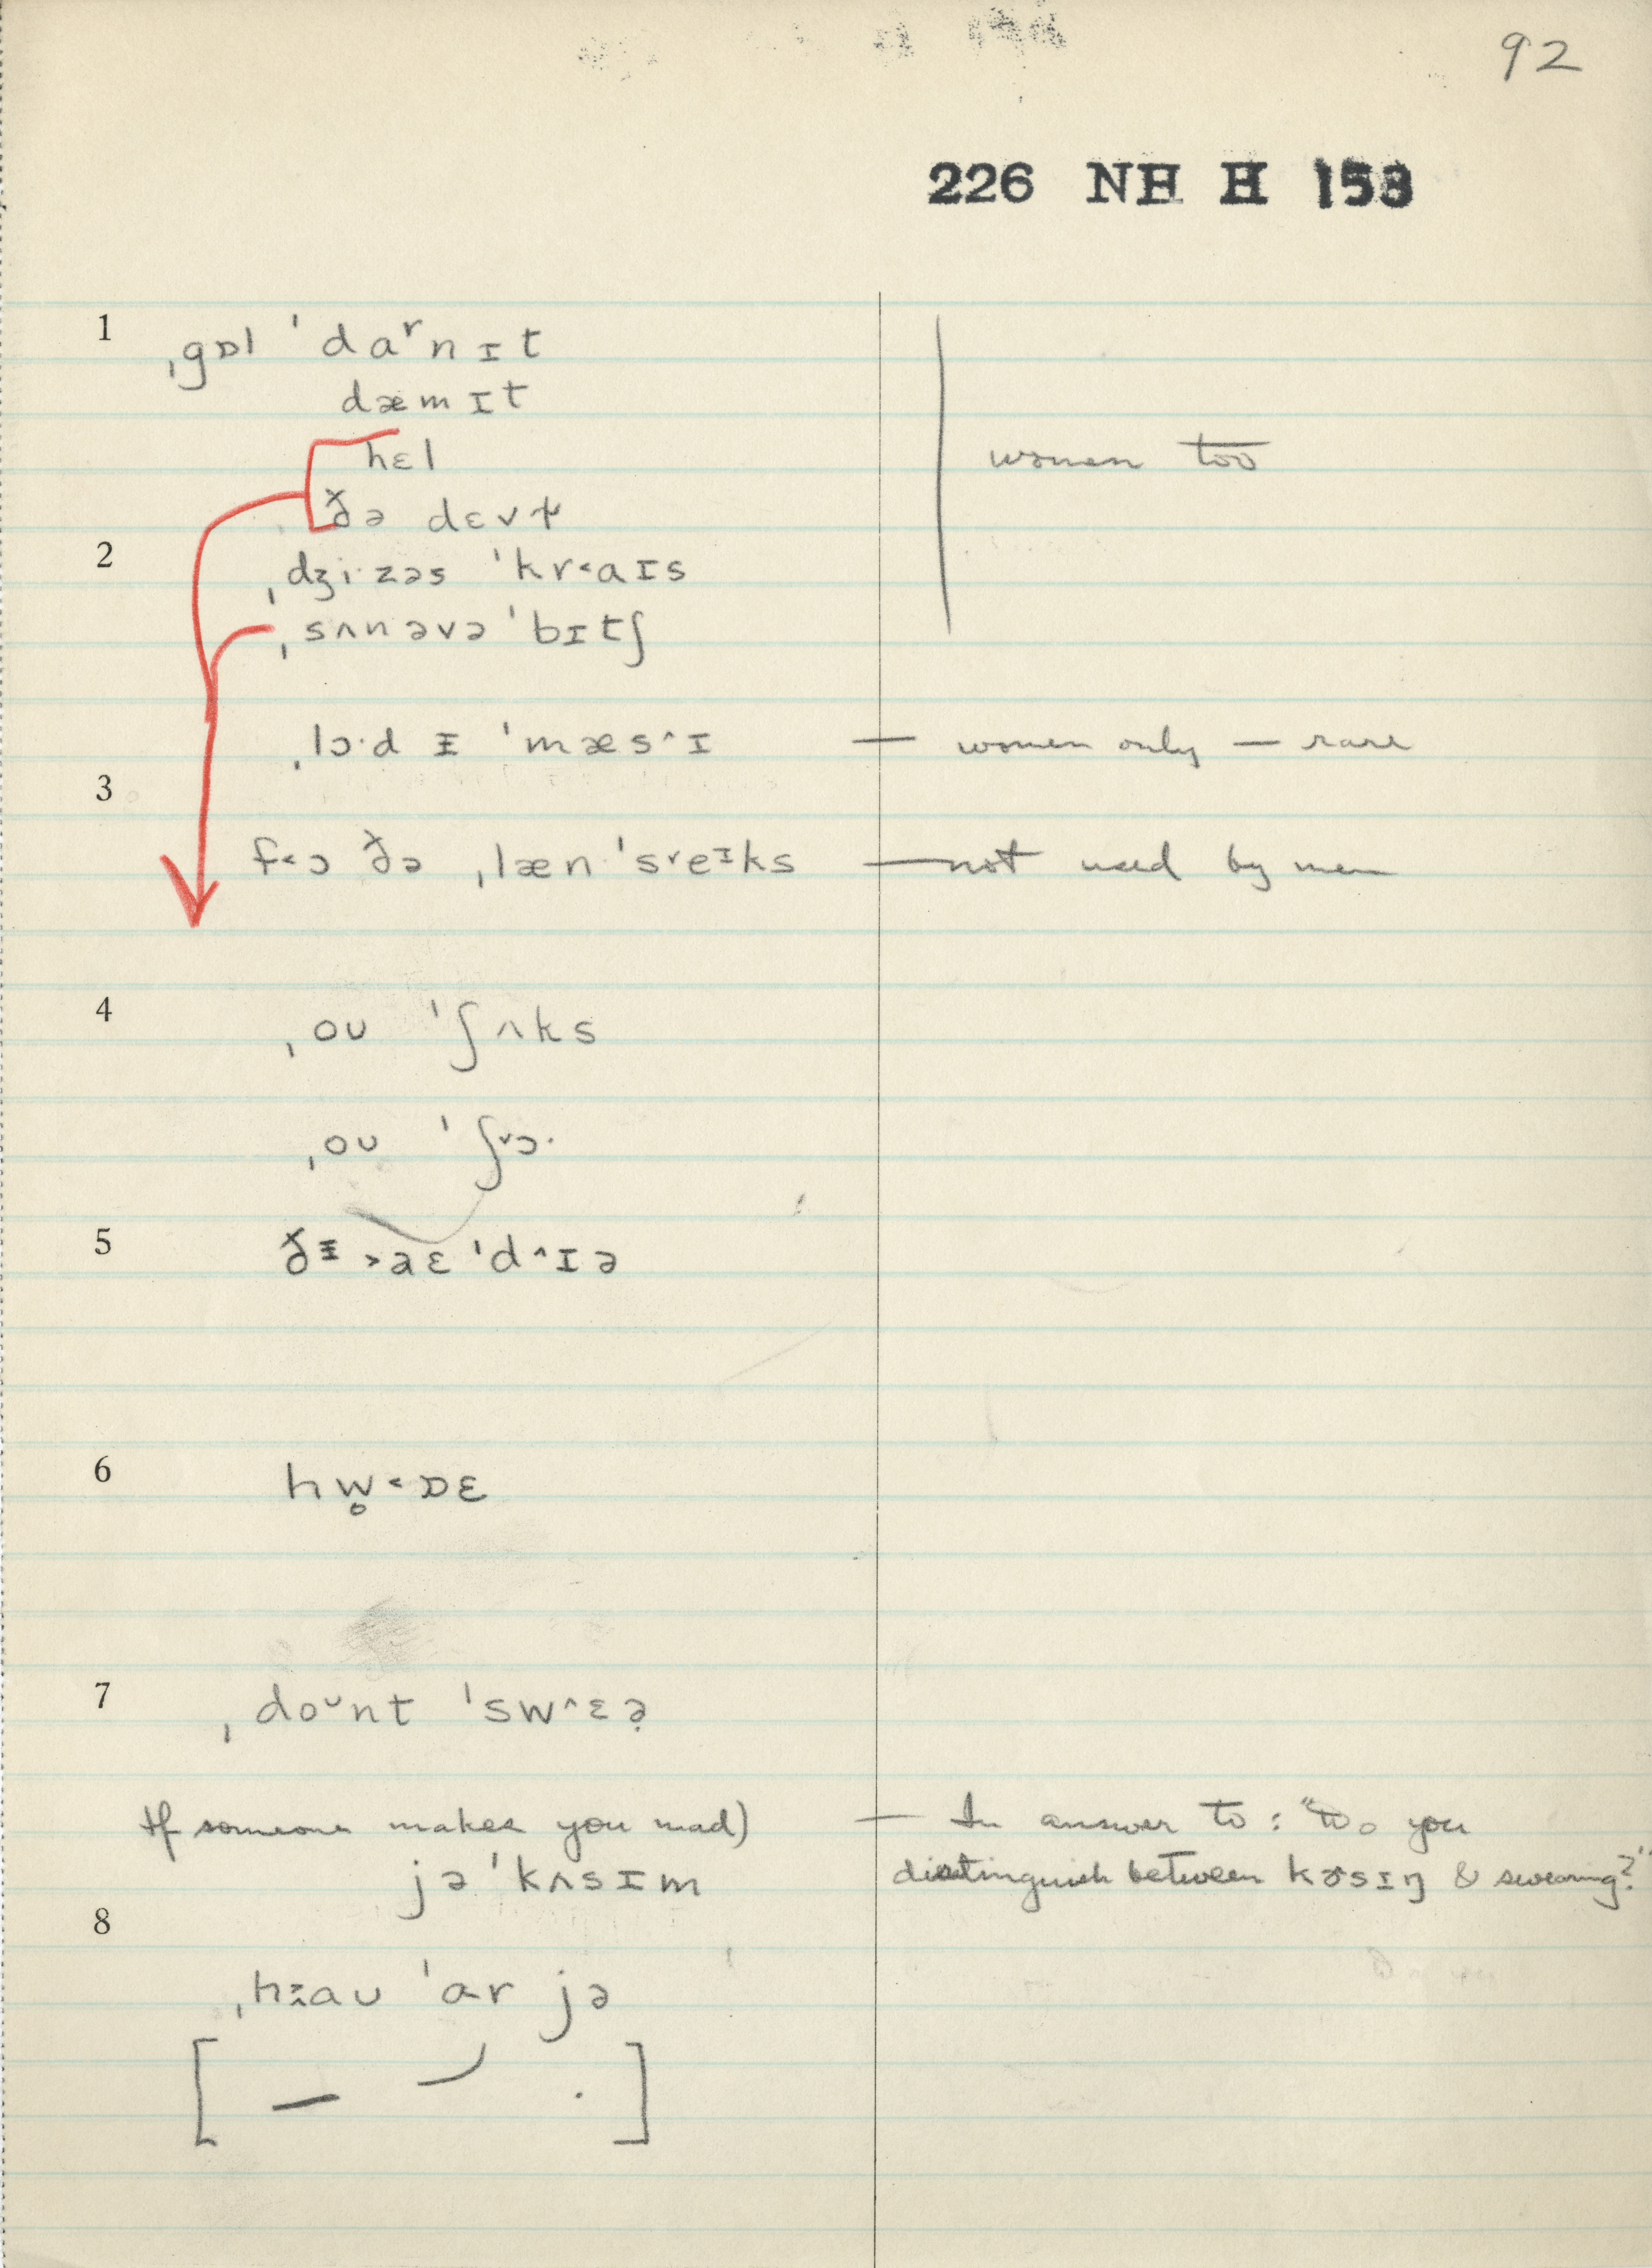 92
226 NH H 153
1 ˌgɒl ˈdaʳnɪt
dæmɪt
hɛl women too
ðə dɛvɫ
2 ˌdʒi·zəs ˈkr˂aɪs
ˌsʌnəvə ˈbɪtʃ
ˌlɔ·d ᵻ ˈmæs˄ɪ — women only — rare
3
f˂ɔ ðə ˌlæn ˈs˅eᶦks — not used by men
4 ˌoʊ ˈʃʌks
ˌoʊ ˈʃ˅ɔ·
5 ðᵻ ˃aɛ ˈd˄ɪə
6 hw̥˂ɒɛ
7 ˌdoᵕnt ˈsw˄ɛə̣
If someone makes you mad) — In answer to: "Do you
jə ˈkʌsɪm distinguish between kɞsɪŋ & swearing?"
8
ˌhaʊ ˈar jə
[ — ⁄ . ]